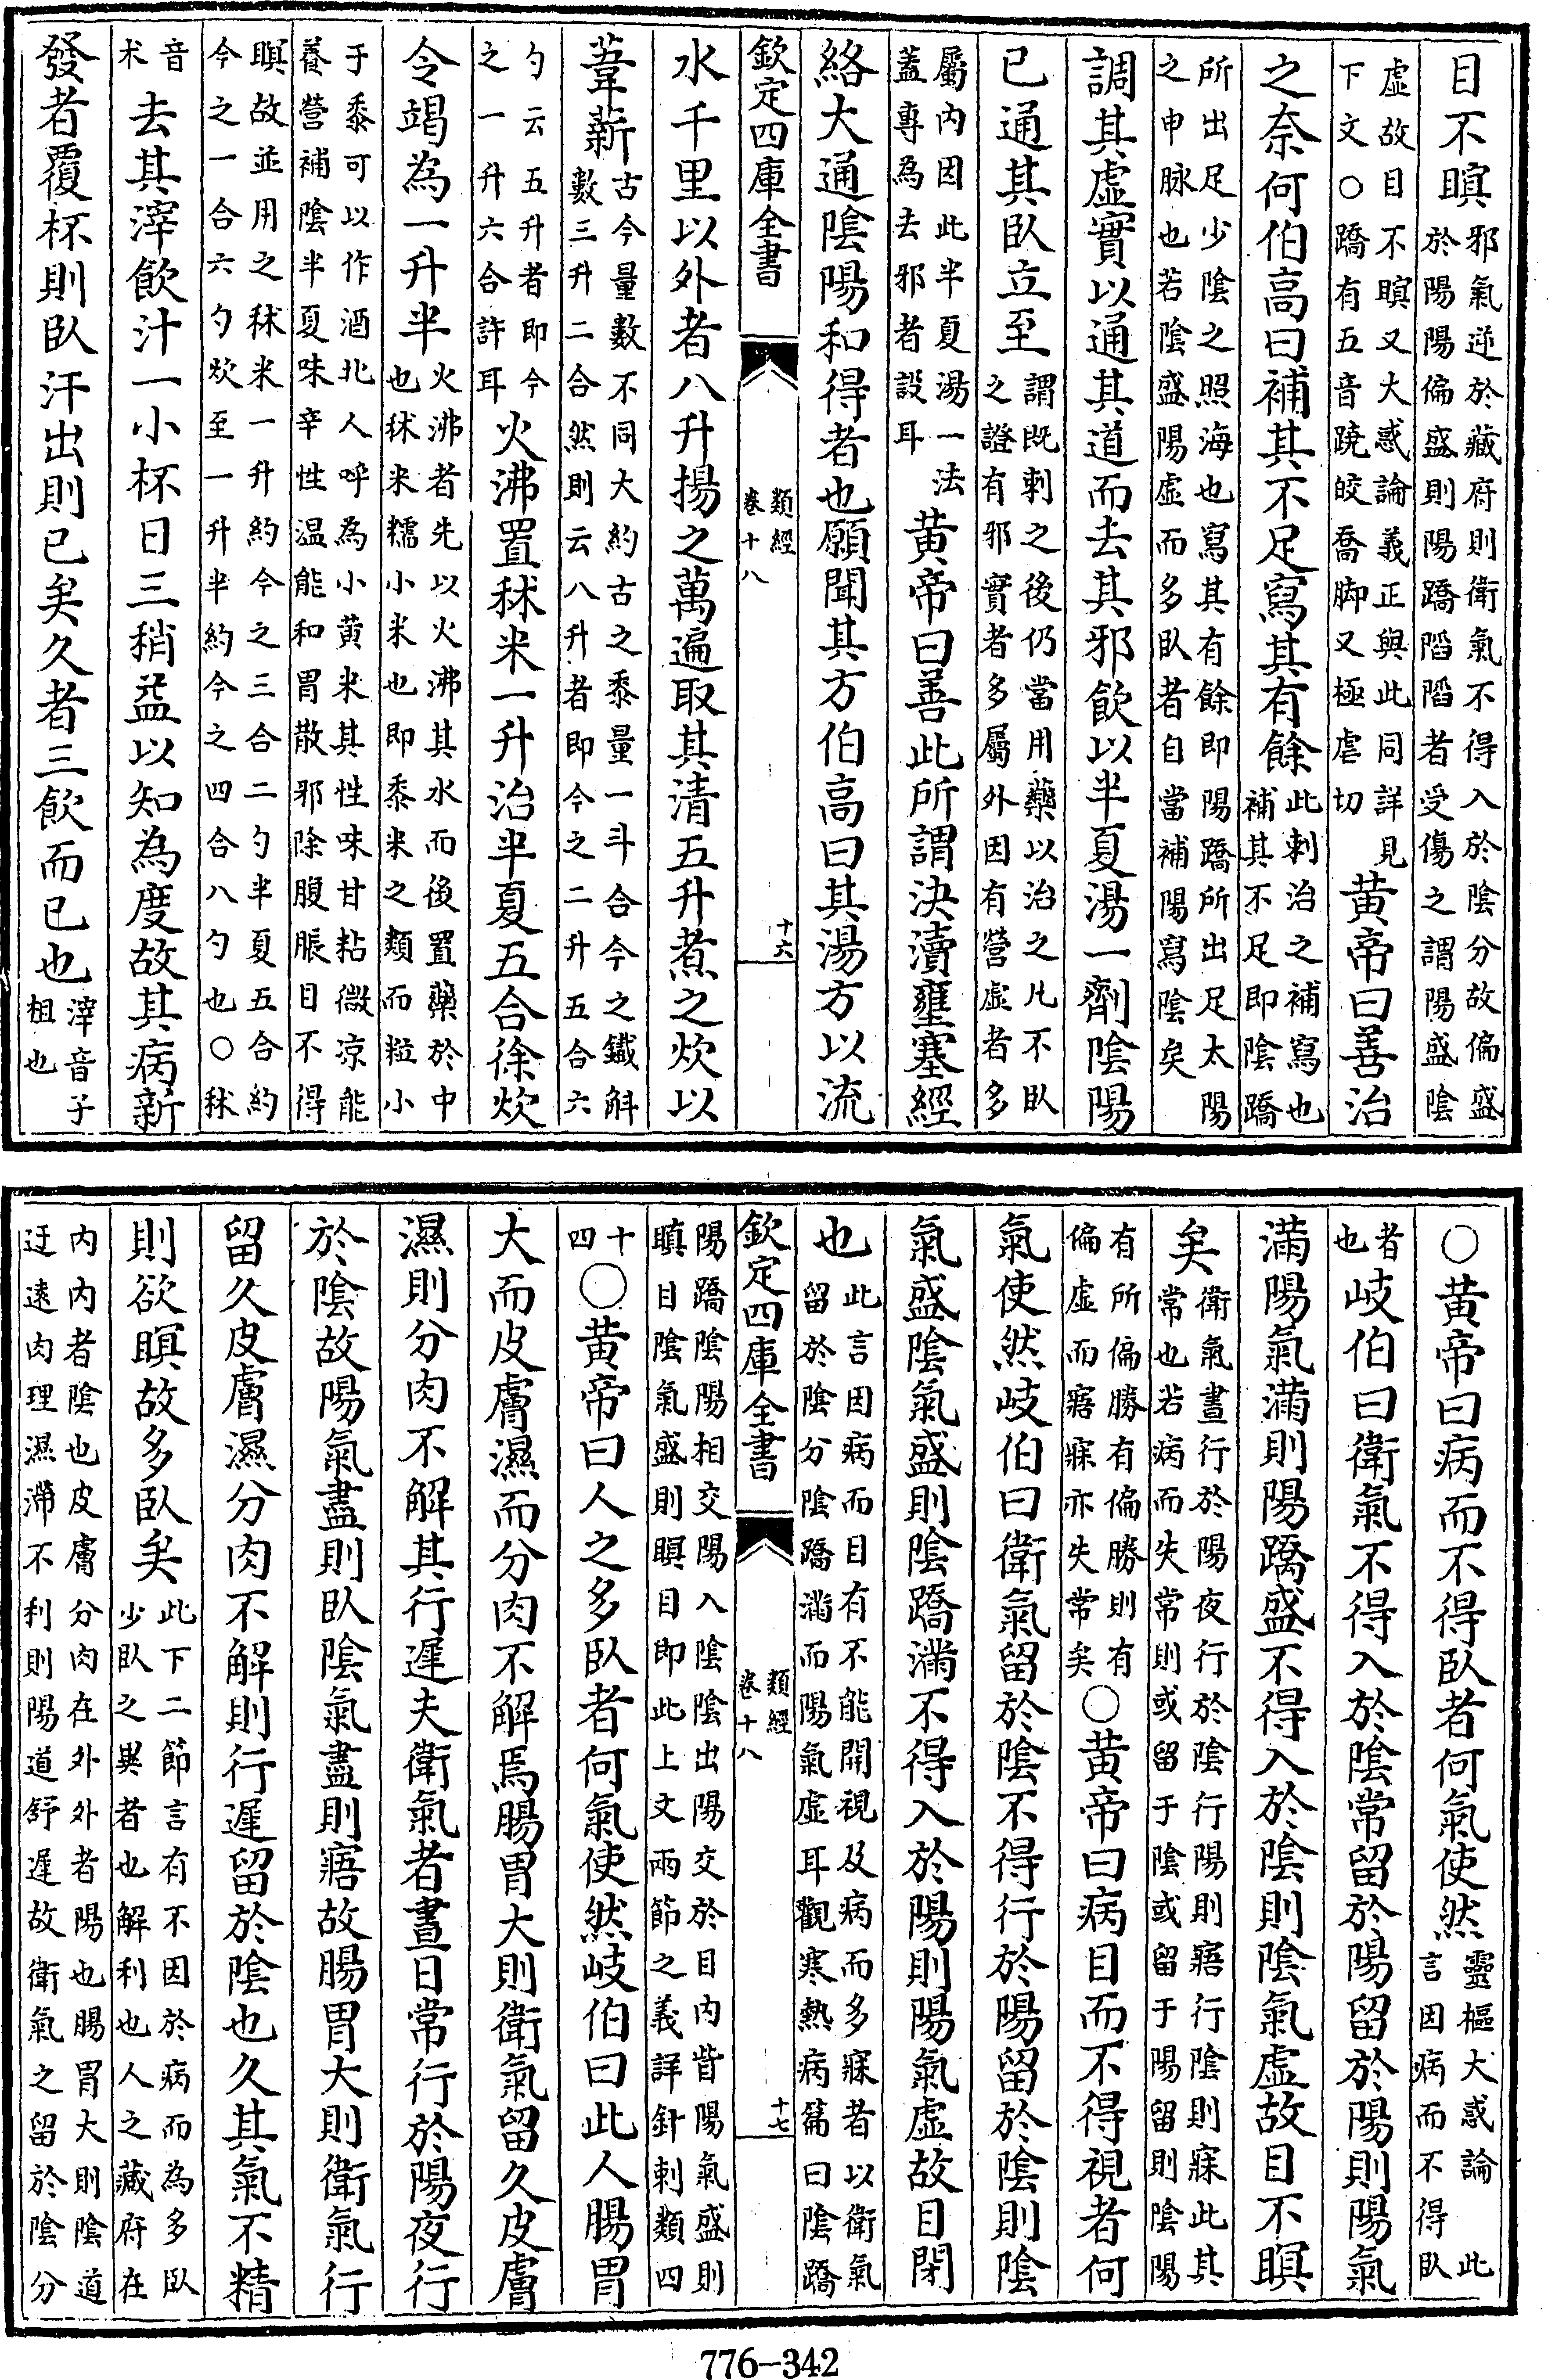 目不瞑邪氣逆於藏府則衛氣不得入於陰分故偏盛於陽陽偏盛則陽蹻陷陷者受傷之謂陽盛陰
虛故目不瞑又大惑論義正與此同詳見下文○蹻有五音蹺皎喬脚又極虐切黃帝曰善治
之奈何伯高曰補其不足寫其有餘此刺治之補寫也補其不足即陰蹻
所出足少陰之照海也寫其有餘即陽蹻所出足太陽之申脉也若陰盛陽虛而多臥者自當補陽寫陰矣
調其虛實以通其道而去其邪飲以半夏湯一劑陰陽
已通其臥立至謂既刺之後仍當用藥以治之凡不臥之證有邪實者多屬外因有營虛者多
屬内因此半夏湯一法蓋專為去邪者設耳黃帝曰善此所謂決瀆壅塞經
絡大通陰陽和得者也願聞其方伯高曰其湯方以流
欽定四庫全書 類經卷十八 十六
水千里以外者八升揚之萬遍取其清五升煮之炊以
葦薪古今量數不同大約古之黍量一斗合今之鐵斛數三升二合然則云八升者即今之二升五合六
勺云五升者即今之一升六合許耳火沸置秫米一升治半夏五合徐炊
令竭為一升半火沸者先以火沸其水而後置藥於中也秫米糯小米也即黍米之類而粒小
于黍可以作酒北人呼為小黃米其性味甘粘微凉能養營補陰半夏味辛性温能和胃散邪除腹脹目不得
瞑故並用之秫米一升約今之三合二勺半夏五合約今之一合六勺炊至一升半約今之四合八勺也○秫
音术去其滓飲汁一小杯日三稍益以知為度故其病新
發者覆杯則臥汗出則已矣久者三飲而已也滓音子柤也
○黃帝曰病而不得臥者何氣使然靈樞大惑論　此言因病而不得臥
者也岐伯曰衛氣不得入於陰常留於陽留於陽則陽氣
滿陽氣滿則陽蹻盛不得入於陰則陰氣虛故目不瞑
矣衛氣晝行於陽夜行於陰行陽則寤行陰則寐此其常也若病而失常則或留于陰或留于陽留則陰陽
有所偏勝有偏勝則有偏虛而寤寐亦失常矣○黃帝曰病目而不得視者何
氣使然岐伯曰衛氣留於陰不得行於陽留於陰則陰
氣盛陰氣盛則陰蹻滿不得入於陽則陽氣虛故目閉
也此言因病而目有不能開視及病而多寐者以衛氣留於陰分陰蹻滿而陽氣虛耳觀寒熱病篇曰陰蹻
欽定四庫全書 類經卷十八 十七
陽蹻陰陽相交陽入陰陰出陽交於目内眥陽氣盛則瞋目陰氣盛則瞑目即此上文兩節之義詳針刺類四
十四○黃帝曰人之多臥者何氣使然岐伯曰此人腸胃
大而皮膚濕而分肉不解焉腸胃大則衛氣留久皮膚
濕則分肉不解其行遲夫衛氣者晝日常行於陽夜行
於陰故陽氣盡則臥陰氣盡則寤故腸胃大則衛氣行
留久皮膚濕分肉不解則行遲留於陰也久其氣不精
則欲瞑故多臥矣此下二節言有不因於病而為多臥少臥之異者也解利也人之藏府在
内内者陰也皮膚分肉在外外者陽也腸胃大則陰道迂遠肉理濕滯不利則陽道舒遲故衛氣之留於陰分
776-342